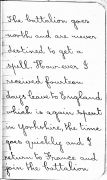 The battalion goes
north and are never
destined to get a
spell. However I
received fourteen
days leave to England
which is again spent
in Yorkshire, the time
goes quickly and I
return to France and
join the battalion